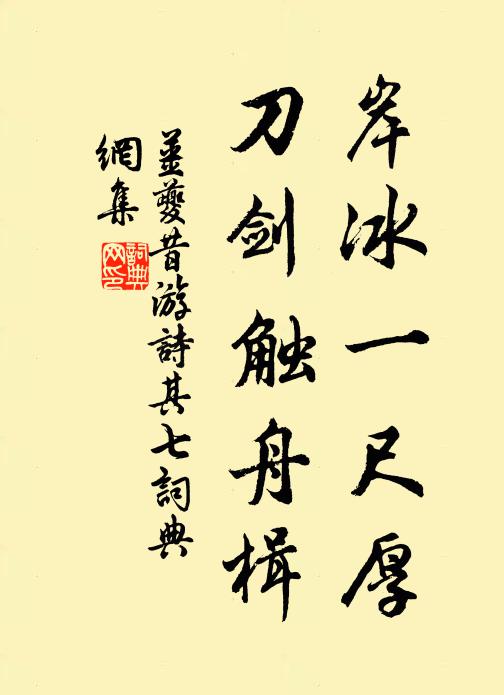 岸冰一尺厚
刀剑触舟楫
姜夔昔游詩其七詞典
網集
詞典
网印